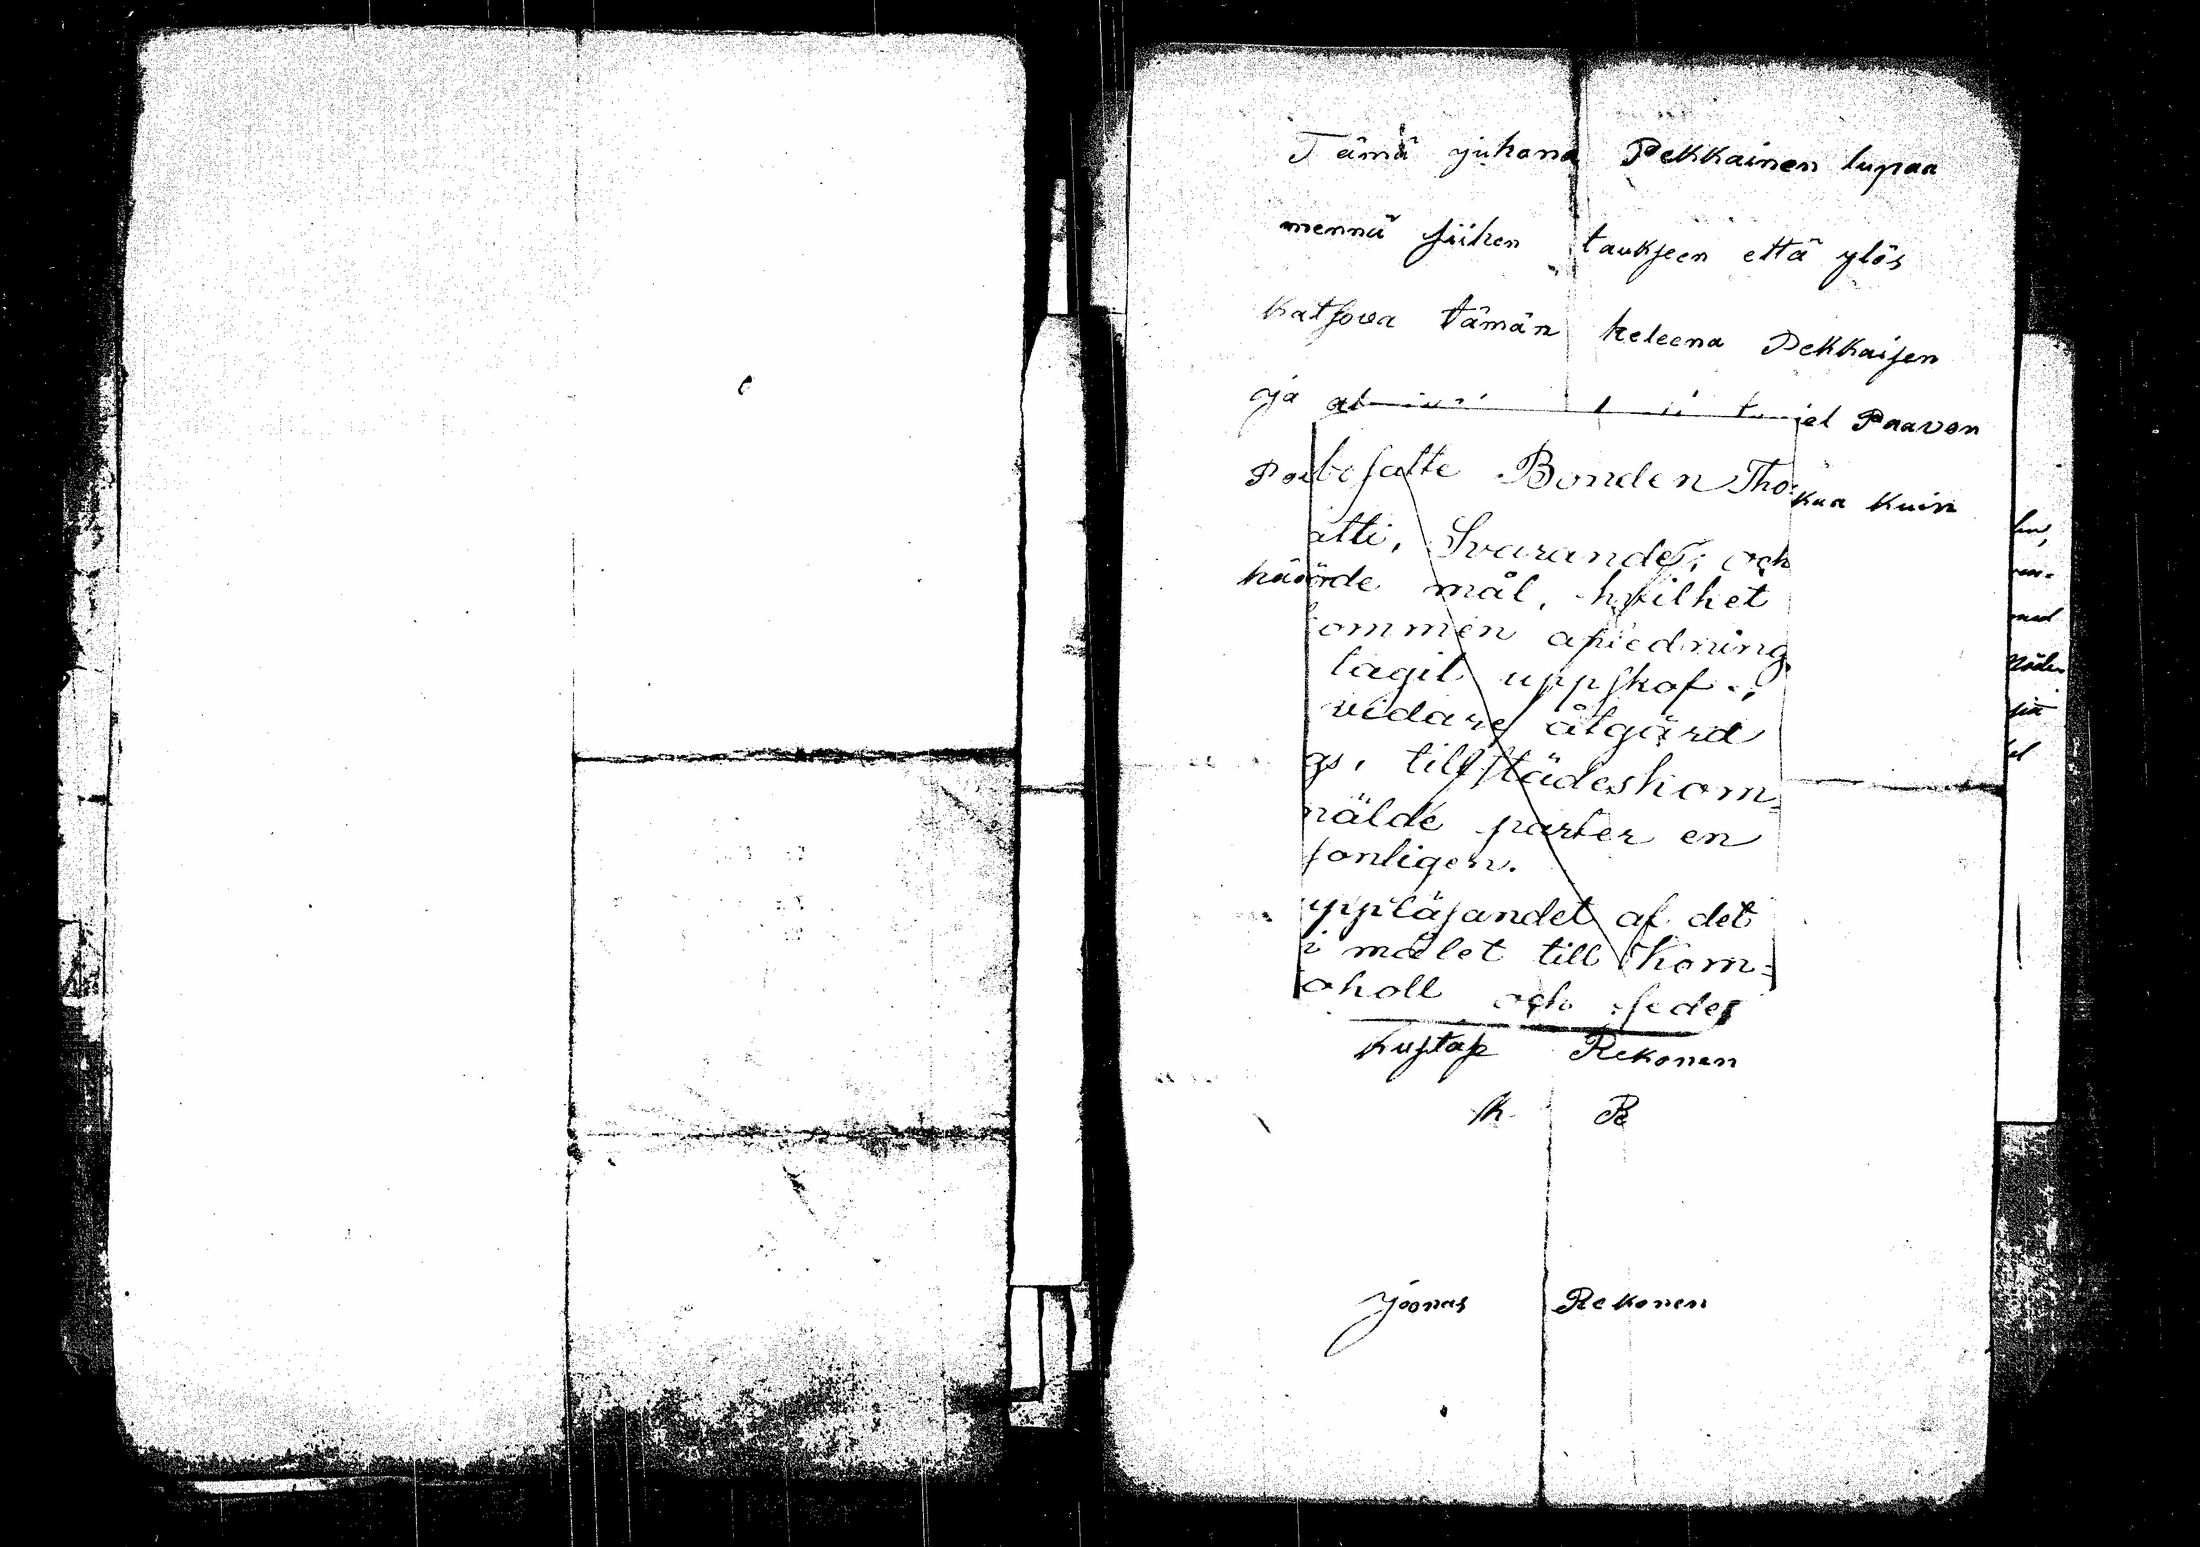 Tämä juhana Pekkainen lupaa
mennä siihen taukseen että ylös
katsova tämän heleena Pekkaisen
ja Paavon
kuin
besatte Bonden Tho
atti, Svarande; och
hörde mål, hvilket
ommen anledning
tagit uppskof
vidare åtgärd
gs, tillstädeskom=
nälde parter en
sonligen.
uppläsandet af det
i målet till Kom=
aholl och sedes
kustap Rekonen
k R
joonas Rekonen